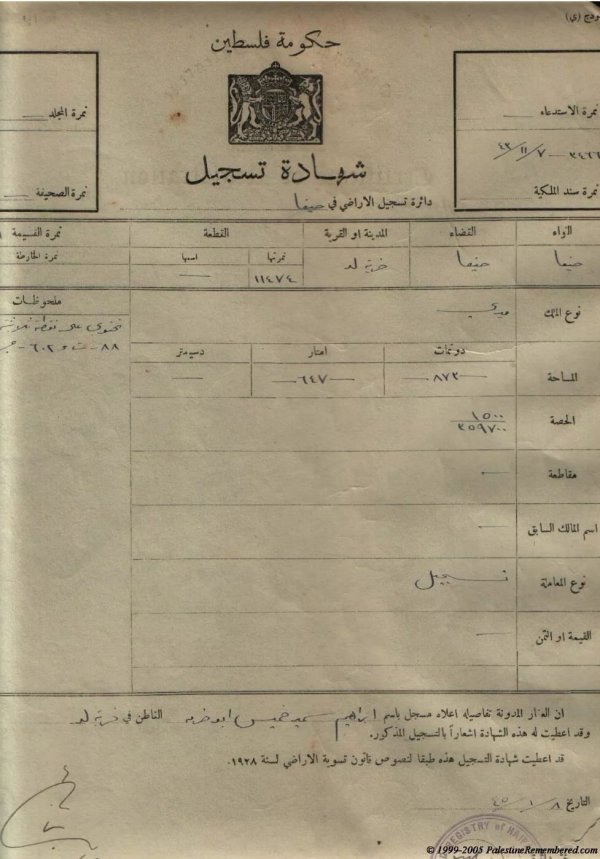 حكومة فلسطين
نمرة الاستدعاء
نمرة المجلد
٤٣/١١/٧
شهادة تسجيل
نمرة سند الملكية
نمرة الصحيفة
دائرة تسجيل الاراضي في حيفا
اللواء القضاء المدينة او القرية القطعة نمرة القسيمة
حيفا حيفا خربة لد نمرتها اسمها نمرة الخارطة
١١٤٧٤ —
نوع الملك ميري ملحوظات
دونمات امتار دسيمتر
المساحة ٨٧٢ ٦٤٧ —
الحصة ١٥٠٠
٣٥٩٧٠٠
مقاطعة —
اسم المالك السابق —
نوع المعاملة تسجيل
القيمة او الثمن —
ان العقار المدونة تفاصيله اعلاه مسجل باسم ابراهيم خميس القاطن في خربة لد
وقد اعطيت له هذه الشهادة اشعاراً بالتسجيل المذكور.
قد اعطيت شهادة التسجيل هذه طبقا لنصوص قانون تسوية الاراضي لسنة ١٩٢٨.
التاريخ ٤٥/١/٨
REGISTRY of HAIFA
© 1999-2005 PalestineRemembered.com